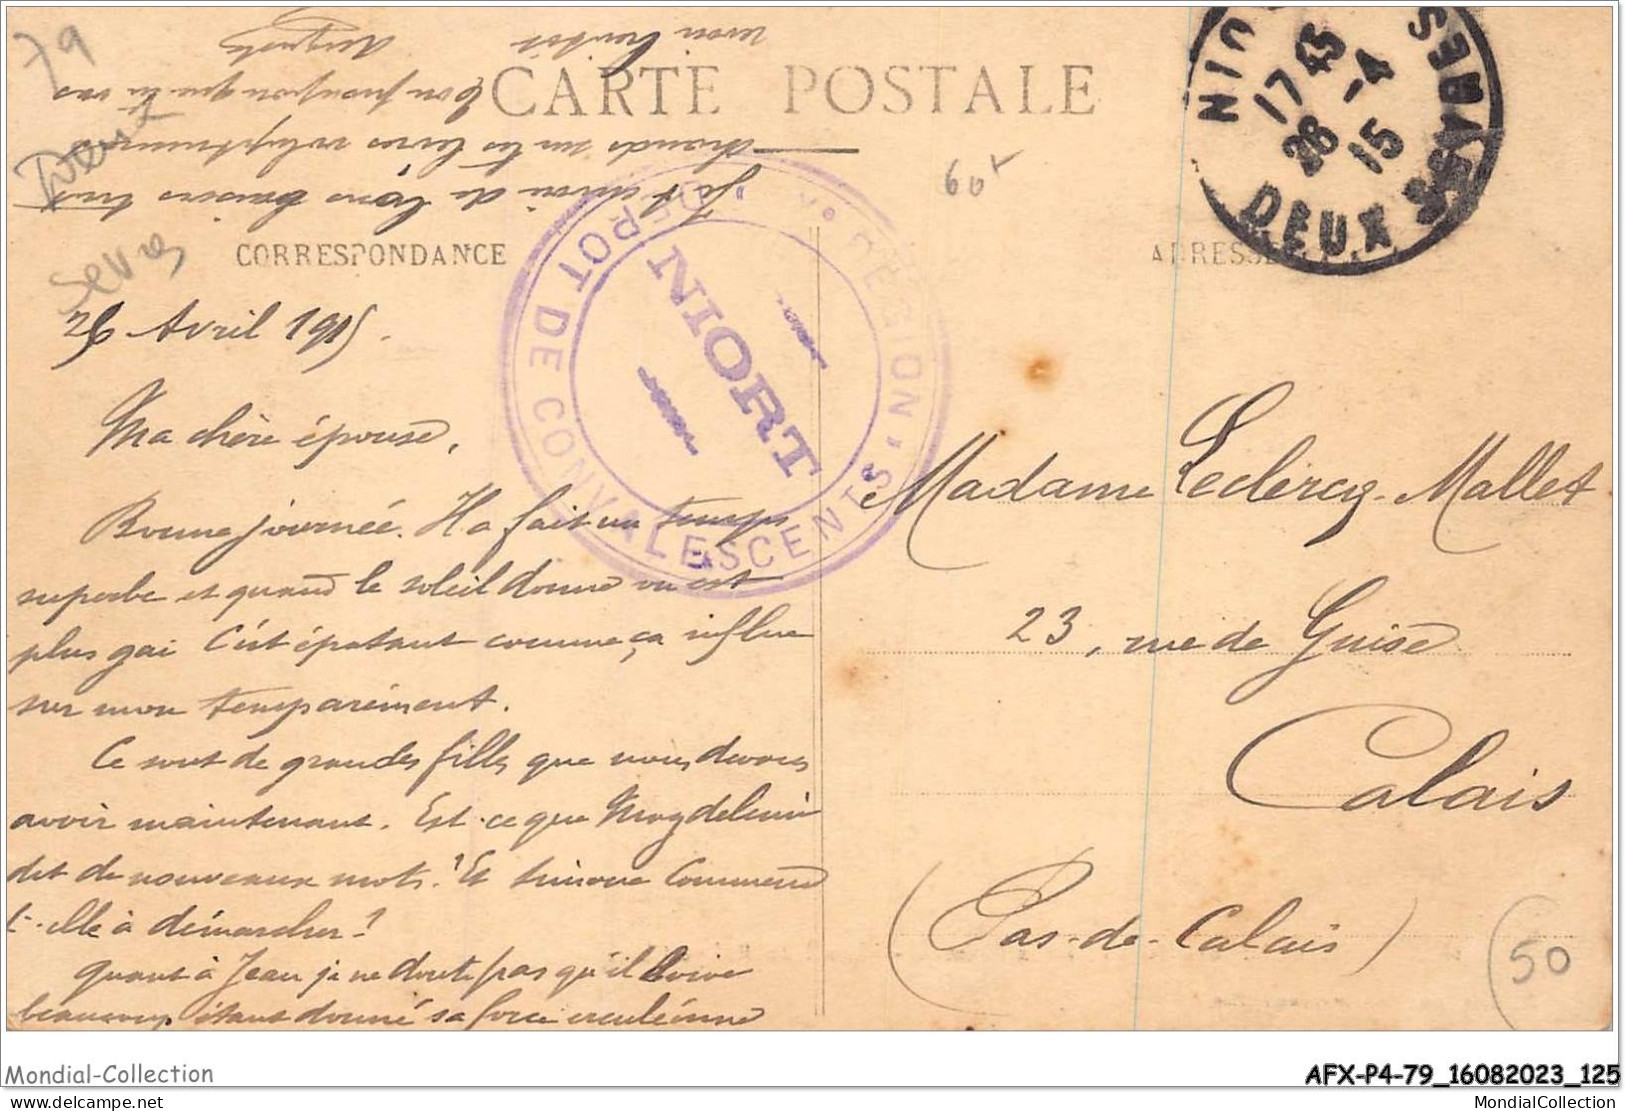 79
Deux
Sevres
CARTE POSTALE
CORRESPONDANCE
ADRESSE
60+
NIO
17 45
26 -4
15
DEUX SEVRES
REGION
DEPOT DE CONVALESCENTS
NIORT
26 Avril 1915.
Ma chère épouse,
Bonne journée. Il a fait un temps
superbe et quand le soleil donne on est
plus gai C'est épatant comme ça influe
sur mon temparément.
Ce sont de grandes filles que nous devons
avoir maintenant. Est-ce que Magdeleine
dit de nouveaux mots? Et Simone Commence
t-elle à démarcher?
quant à Jean je ne doute pas qu'il boive
beaucoup étant donné sa force erculéenne
sur tes lèvres
Ton que tu
Madame Leclercq-Mallet
23, rue de Guise
Calais
(Pas-de-Calais)
50
Mondial-Collection
AFX-P4-79_16082023_125
delcampe.net
MondialCollection